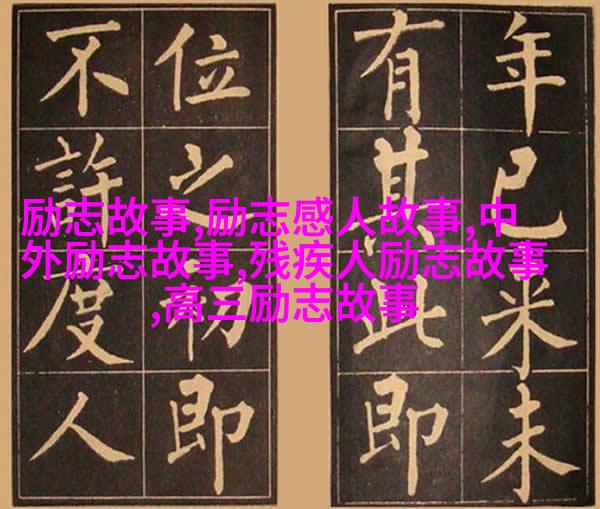 励志故事,励志感人故事,中
外励志故事,残疾人励志故事
,高三励志故事
年已来未
有其此即
位之初即
不許度人